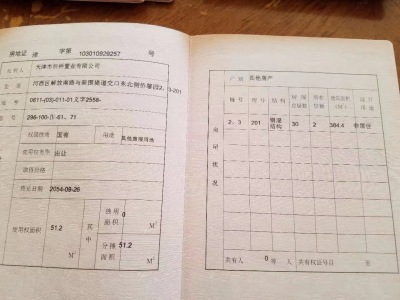 房地证 津 字第 103010929257 号
权利人 天津市
置业有限公司
坐落 河西区解放南路与
交口东北侧
2、3-201
地号 0811-(03)-011-01
图号 296-100-
-61、71
权属性质 国有 用途
使用权类型 出让
终止日期 2054-09-26
使用权面积 51.2 M²
其中
独用面积 0 M²
分摊面积 51.2 M²
产别 其他房产
房屋状况
幢号 房号 结构 房屋总层数 所在层数 建筑面积(M²) 设计用途
2、3 201 钢混结构 30 2 384.4 非居住
共有人 0 等 人 共有权证号自 至